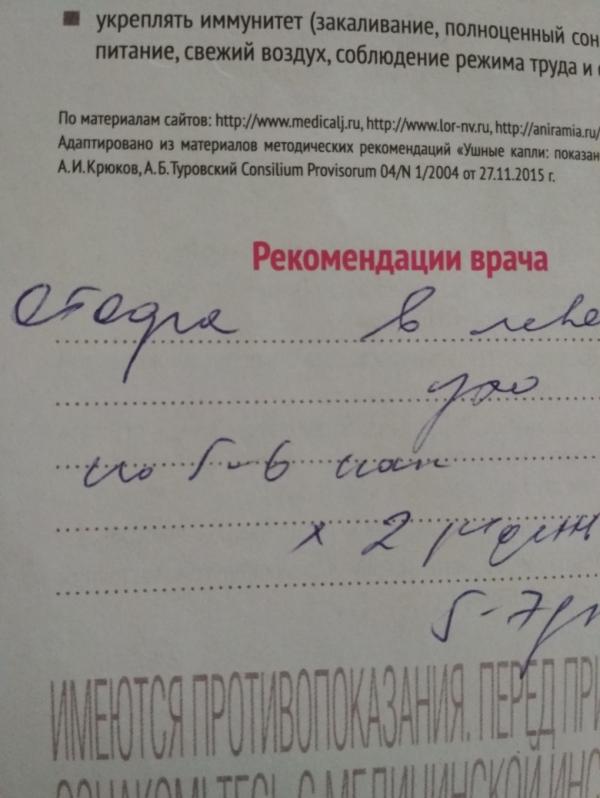 укреплять иммунитет (закаливание, полноценный сон
питание, свежий воздух, соблюдение режима труда и
По материалам сайтов: http://www.medicalj.ru, http://www.lor-nv.ru, http://aniramia.ru/
Адаптировано из материалов методических рекомендаций «Ушные капли: показан
А.И.Крюков, А.Б.Туровский Consilium Provisorum 04/N 1/2004 от 27.11.2015 г.
Рекомендации врача
в лево
ухо
по 5-6 кап
х 2 р/день
5-7 дн
ИМЕЮТСЯ ПРОТИВОПОКАЗАНИЯ. ПЕРЕД ПРИ
ОЗНАКОМЬТЕСЬ С МЕДИЦИНСКОЙ ИНС